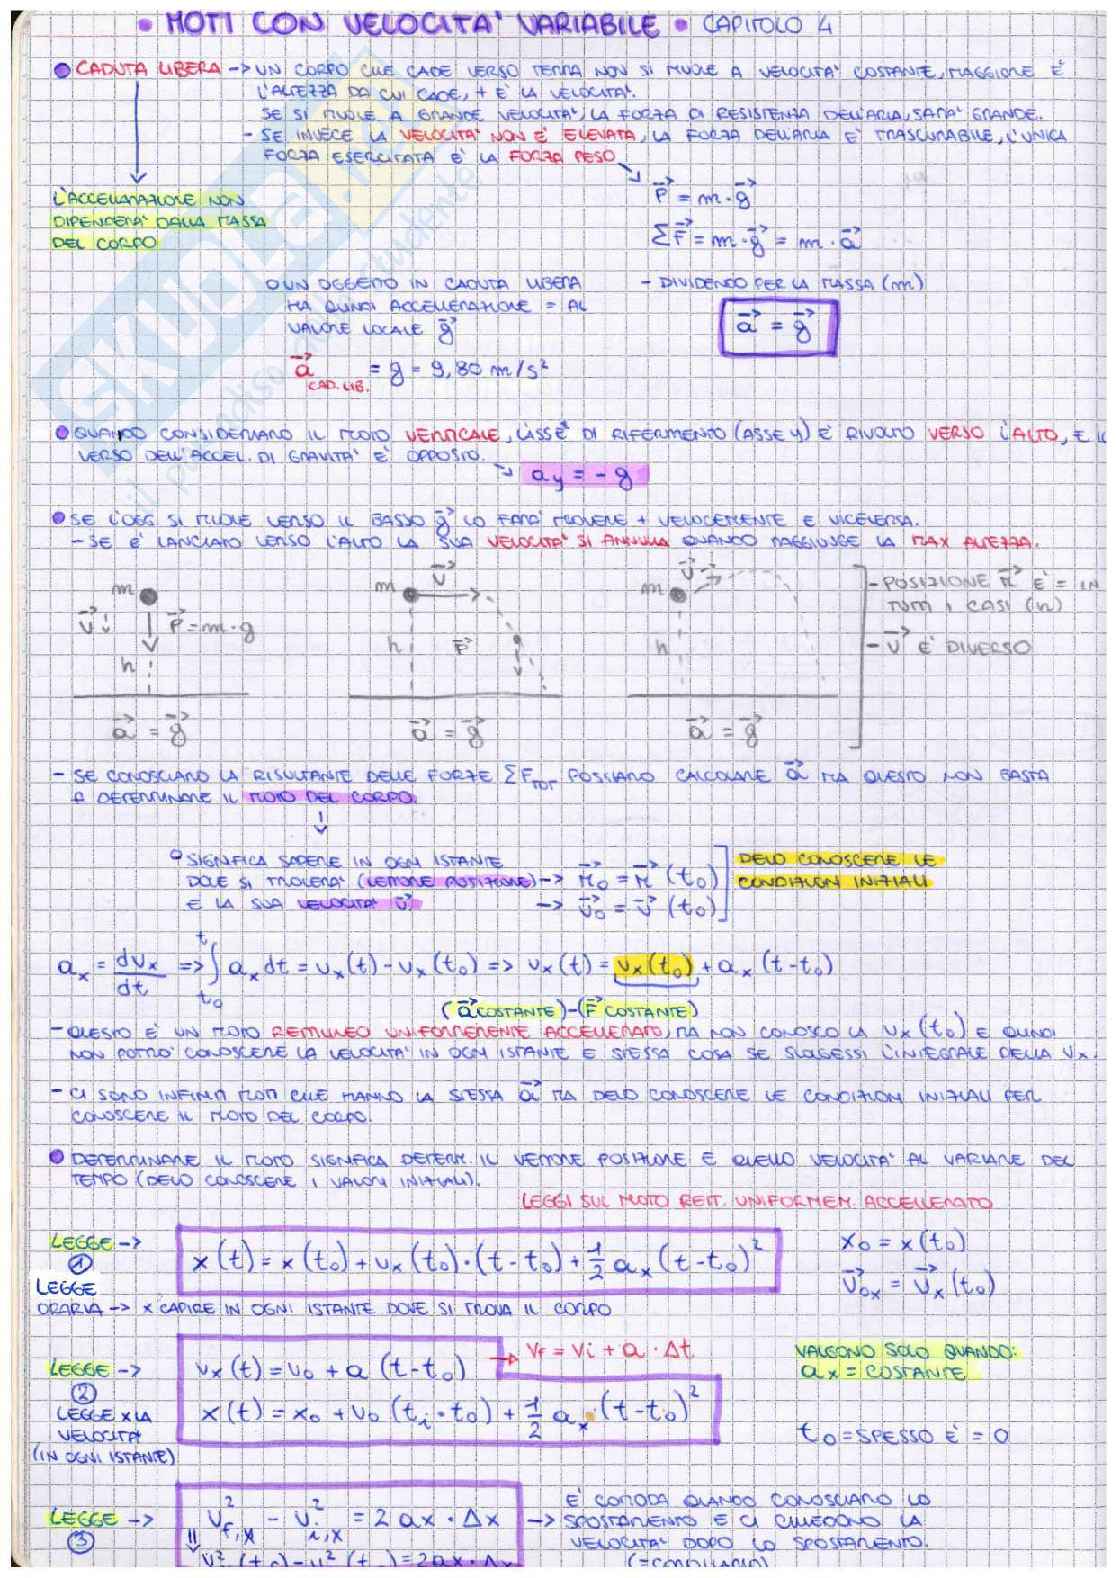 • MOTI CON VELOCITA' VARIABILE • CAPITOLO 4
• CADUTA LIBERA -> UN CORPO CHE CADE VERSO TERRA NON SI MUOVE A VELOCITA' COSTANTE, MAGGIORE E'
L'ALTEZZA DA CUI CADE, + E' LA VELOCITA'.
SE SI MUOVE A GRANDE VELOCITA', LA FORZA DI RESISTENZA DELL'ARIA, SARA' GRANDE.
- SE INVECE LA VELOCITA' NON E' ELEVATA, LA FORZA DELL'ARIA E' TRASCURABILE, L'UNICA
FORZA ESERCITATA E' LA FORZA PESO
L'ACCELLERAZIONE NON
DIPENDERA' DALLA MASSA
DEL CORPO
P⃗ = m·g⃗
ΣF⃗ = m·g⃗ = m·a⃗
O UN OGGETTO IN CADUTA LIBERA
HA QUINDI ACCELLERAZIONE = AL
VALORE LOCALE g⃗
- DIVIDENDO PER LA MASSA (m)
a⃗ = g⃗
a⃗ CAD. LIB. = g = 9,80 m/s²
• QUANDO CONSIDERIAMO IL MOTO VERTICALE, L'ASSE DI RIFERIMENTO (ASSE y) E' RIVOLTO VERSO L'ALTO, E IL
VERSO DELL'ACCEL. DI GRAVITA' E' OPPOSTO.
a_y = -g
• SE L'OGG. SI MUOVE VERSO IL BASSO g⃗ LO FARA' MUOVERE + VELOCEMENTE E VICEVERSA.
- SE E' LANCIATO VERSO L'ALTO LA SUA VELOCITA' SI ANNULLA QUANDO RAGGIUNGE LA MAX ALTEZZA.
m
v⃗
P⃗ = m·g
h
a⃗ = g⃗
m v⃗
h P⃗
a⃗ = g⃗
m v⃗
h
a⃗ = g⃗
- POSIZIONE r⃗ E' = IN
TUTTI I CASI (h)
- v⃗ E' DIVERSO
- SE CONOSCIAMO LA RISULTANTE DELLE FORZE ΣF_TOT POSSIAMO CALCOLARE a⃗ MA QUESTO NON BASTA
A DETERMINARE IL MOTO DEL CORPO.
O SIGNIFICA SAPERE IN OGNI ISTANTE
DOVE SI TROVERA' (VETTORE POSIZIONE) -> r⃗₀ = r⃗ (t₀)
E LA SUA VELOCITA' v⃗ -> v⃗₀ = v⃗ (t₀)
DEVO CONOSCERE LE
CONDIZIONI INIZIALI
a_x = dv_x/dt => ∫_{t₀}^{t} a_x dt = v_x(t) - v_x(t₀) => v_x(t) = v_x(t₀) + a_x (t-t₀)
(a⃗ COSTANTE) - (F⃗ COSTANTE)
- QUESTO E' UN MOTO RETTILINEO UNIFORMEMENTE ACCELLERATO, MA NON CONOSCO LA v_x(t₀) E QUINDI
NON POTRO' CONOSCERE LA VELOCITA' IN OGNI ISTANTE E STESSA COSA SE SVOLGESSI L'INTEGRALE DELLA v_x.
- CI SONO INFINITI MOTI CHE HANNO LA STESSA a⃗ MA DEVO CONOSCERE LE CONDIZIONI INIZIALI PER
CONOSCERE IL MOTO DEL CORPO.
• DETERMINARE IL MOTO SIGNIFICA DETERM. IL VETTORE POSIZIONE E QUELLO VELOCITA' AL VARIARE DEL
TEMPO (DEVO CONOSCERE I VALORI INIZIALI).
LEGGI SUL MOTO RETT. UNIFORMEM. ACCELLERATO
LEGGE -> ①
x(t) = x(t₀) + v_x(t₀)·(t-t₀) + ½ a_x (t-t₀)²
x₀ = x(t₀)
v⃗₀ₓ = v⃗_x (t₀)
LEGGE
ORARIA -> x CAPIRE IN OGNI ISTANTE DOVE SI TROVA IL CORPO
LEGGE -> ②
v_x(t) = v₀ + a (t-t₀)
-> v_f = v_i + a·Δt
VALGONO SOLO QUANDO:
a_x = COSTANTE
x(t) = x₀ + v₀ (t_i·t₀) + ½ a_x·(t-t₀)²
LEGGE x LA
VELOCITA'
(IN OGNI ISTANTE)
t₀ = SPESSO E' = 0
LEGGE -> ③
v²_f,x - v²_i,x = 2 a_x·Δx
-> E' COMODA QUANDO CONOSCIAMO LO
SPOSTAMENTO E CI CHIEDONO LA
VELOCITA' DOPO LO SPOSTAMENTO.